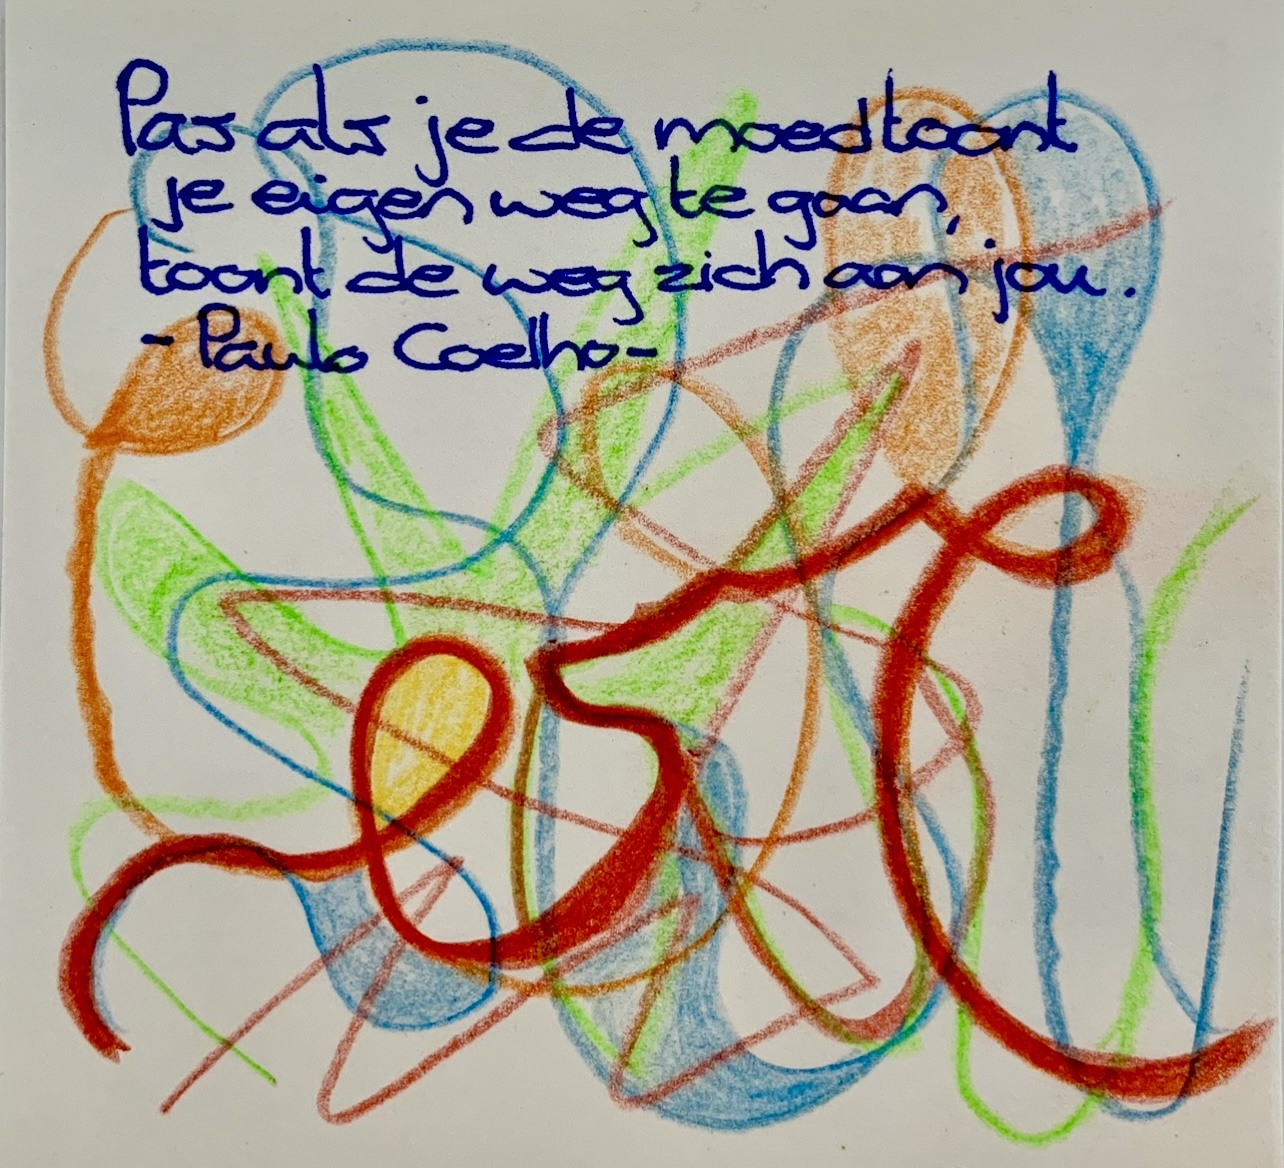 Pas als je de moed toont
je eigen weg te gaan,
toont de weg zich aan jou.
- Paulo Coelho -